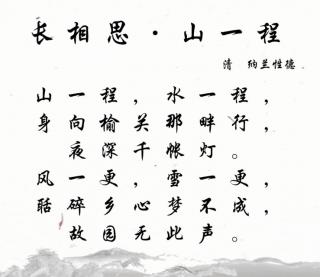 长相思·山一程
清 纳兰性德
山一程，水一程，
身向榆关那畔行，
夜深千帐灯。
风一更，雪一更，
聒碎乡心梦不成，
故园无此声。